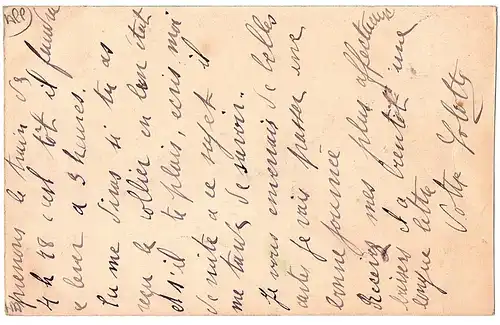 prenons le train de
4 h 28 c'est tôt il faudra
se lever a 3 heures.
Tu me diras si tu as
reçu le collier en bon état
et s'il te plais, ecris moi
de suite a ce sujet il
me tarde de savoir.
Je vous emmenais de belles
cartes je vais passer une
bonne journée
Recevez mes plus affectueux
baisers et a bientôt une
longue lettre
Votre